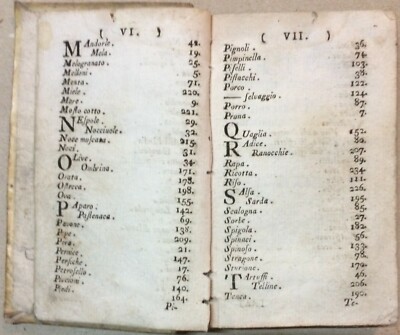 ( VI. )
MAndorle. 42.
Mela. 19.
Melogranato. 25.
Melloni. 5.
Menta. 71.
Miele. 220.
More. 9.
Mosto cotto. 221.
NEspole. 29.
Nocciuole. 32.
Noce moscata. 215.
Noci. 31.
OLive. 34.
Ombrina. 171.
Orata. 178.
Ostreca. 198.
Ova. 155.
PAparo. 142.
Pastenaca. 69.
Pavone. 138.
Pepe. 209.
Pera. 21.
Pernice. 147.
Persiche. 17.
Petrosello. 76.
Piccioni. 140.
Pindi. 164.
Pi-
( VII. )
Pignoli. 36.
Pimpinella. 74.
Piselli. 103.
Pistacchi. 38.
Porco. 122.
—— selvaggio. 124.
Porro. 87.
Pruna. 7.
QUaglia. 152.
RAdice. 80.
Ranocchie. 207.
Rapa. 89.
Ricotta. 234.
Riso. 111.
SAlsa. 226.
Sarda. 195.
Scalogna. 85.
Sorbe. 27.
Spigola. 182.
Spinaci. 56.
Spinosa. 133.
Stragone. 78.
Sturione. 170.
TArtuffi. 46.
Telline. 206.
190.
Te-